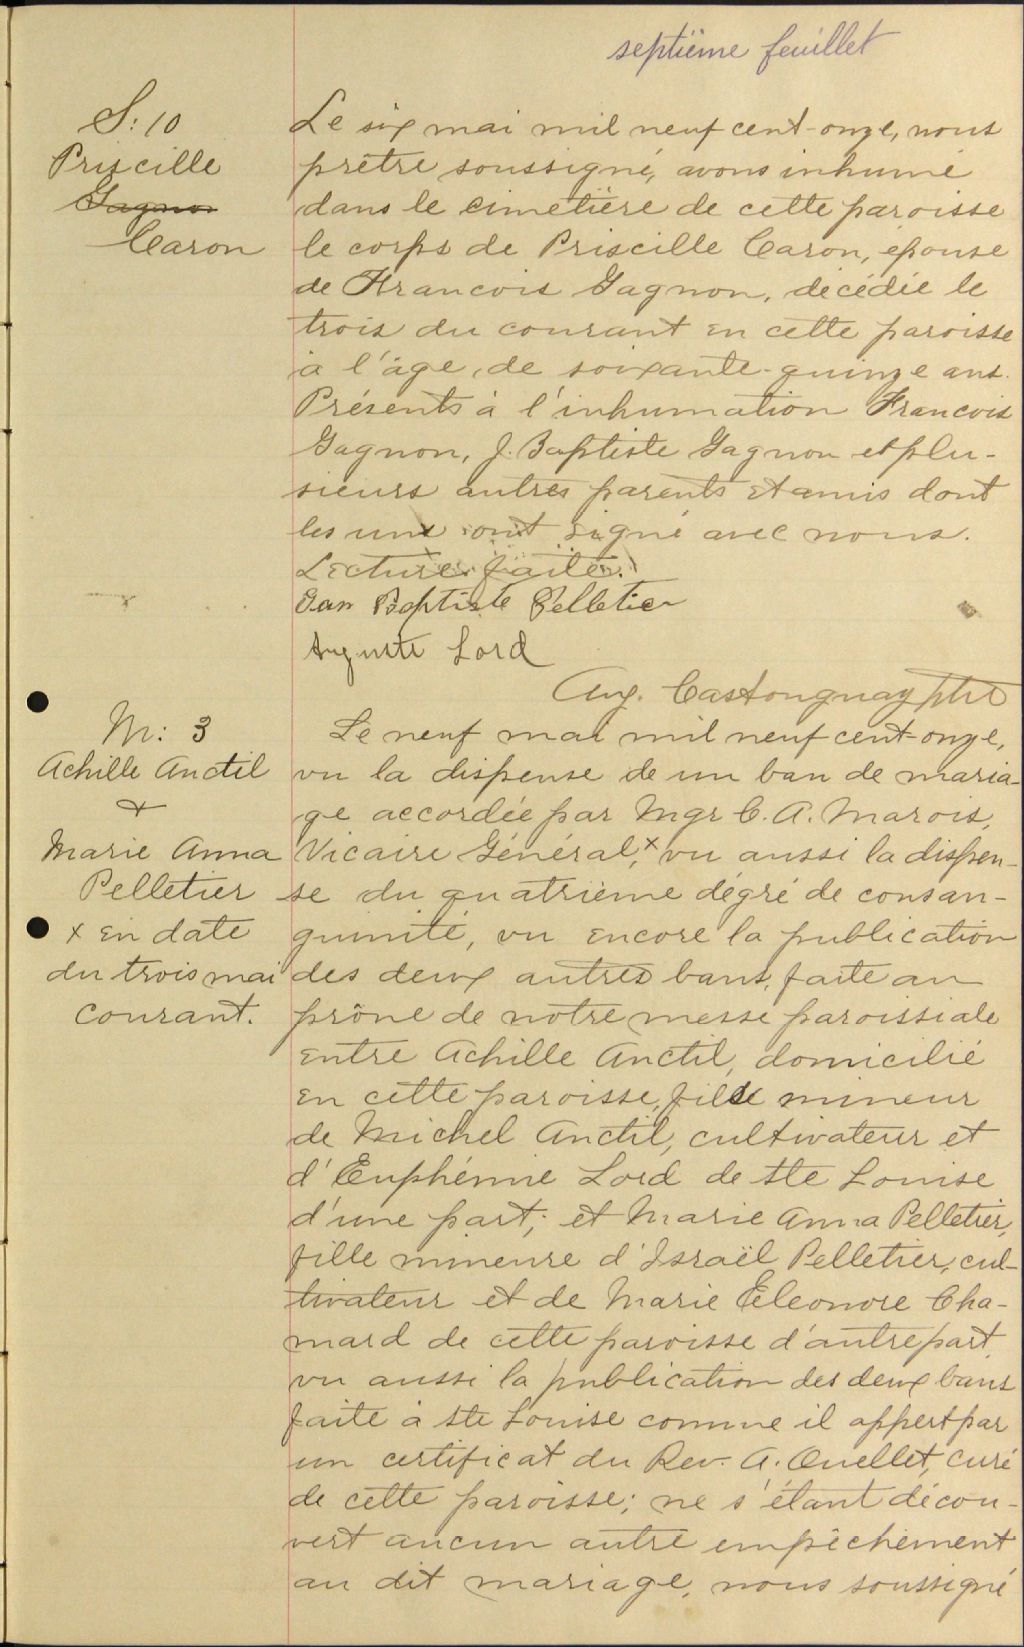 septième feuillet
S: 10
Priscille
Gagnon
Caron
Le six mai mil neuf cent-onze, nous
prêtre soussigné, avons inhumé
dans le cimetière de cette paroisse
le corps de Priscille Caron, épouse
de Francois Gagnon, décédée le
trois du courant en cette paroisse
à l'âge, de soixante-quinze ans.
Présents à l'inhumation Francois
Gagnon, J. Baptiste Gagnon et plu-
sieurs autres parents et amis dont
les uns ont signé avec nous.
Lecture faite.
Jan Baptiste Pelletier
Auguste Lord
Aug. Castonguay ptre
M: 3
Achille Anctil
&
Marie Anna
Pelletier
x en date
du trois mai
courant.
Le neuf mai mil neuf cent-onze,
vu la dispense de un ban de maria-
ge accordée par Mgr C. A. Marois,
Vicaire Général,x vu aussi la dispen-
se du quatrième dégré de consan-
guinité, vu encore la publication
des deux autres bans, faite au
prône de notre messe paroissiale
entre Achille Anctil, domicilié
en cette paroisse, fils mineur
de Michel Anctil, cultivateur et
d'Euphémie Lord de Ste Louise
d'une part; et Marie Anna Pelletier,
fille mineure d'Israël Pelletier, cul-
tivateur et de Marie Eléonore Cha-
mard de cette paroisse d'autre part
vu aussi la publication des deux bans
faite à Ste Louise comme il appert par
un certificat du Rev. A. Ouellet, curé
de cette paroisse; ne s'étant décou-
vert aucun autre empêchement
au dit mariage, nous soussigné